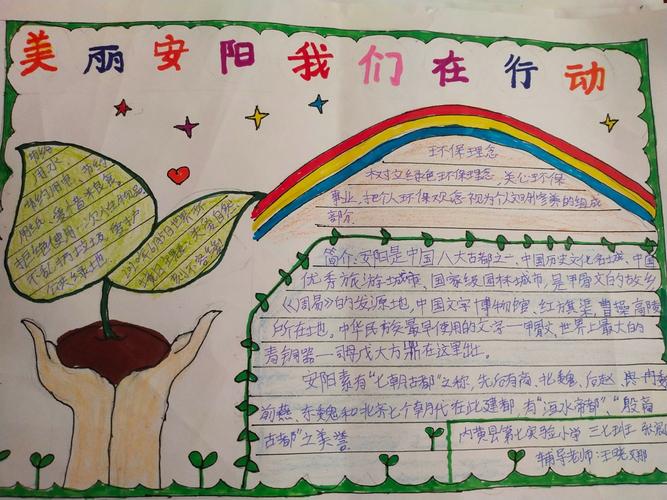 美丽安阳我们在行动
节约
用水
节约用电 节约
拒绝使用一次性物品
环保理念
树立绿色环保理念,关心环保
事业,把个人环保观念视为个人文明修养的组成
部分
简介:安阳是中国八大古都之一、中国历史文化名城、中国
优秀旅游城市、国家级园林城市,是甲骨文的故乡
《周易》的发源地,中国文字博物馆、红旗渠、曹操高陵
所在地。中华民族最早使用的文字—甲骨文、世界上最大的
青铜器—司母戊大方鼎在这里出。
安阳素有“七朝古都”之称,先后有商、北魏、后赵、冉魏
前燕、东魏和北齐七个朝代在此建都,有“洹水帝都”、“殷商
古都”之美誉
内黄县第七实验小学 三七班
辅导老师:王晓娜